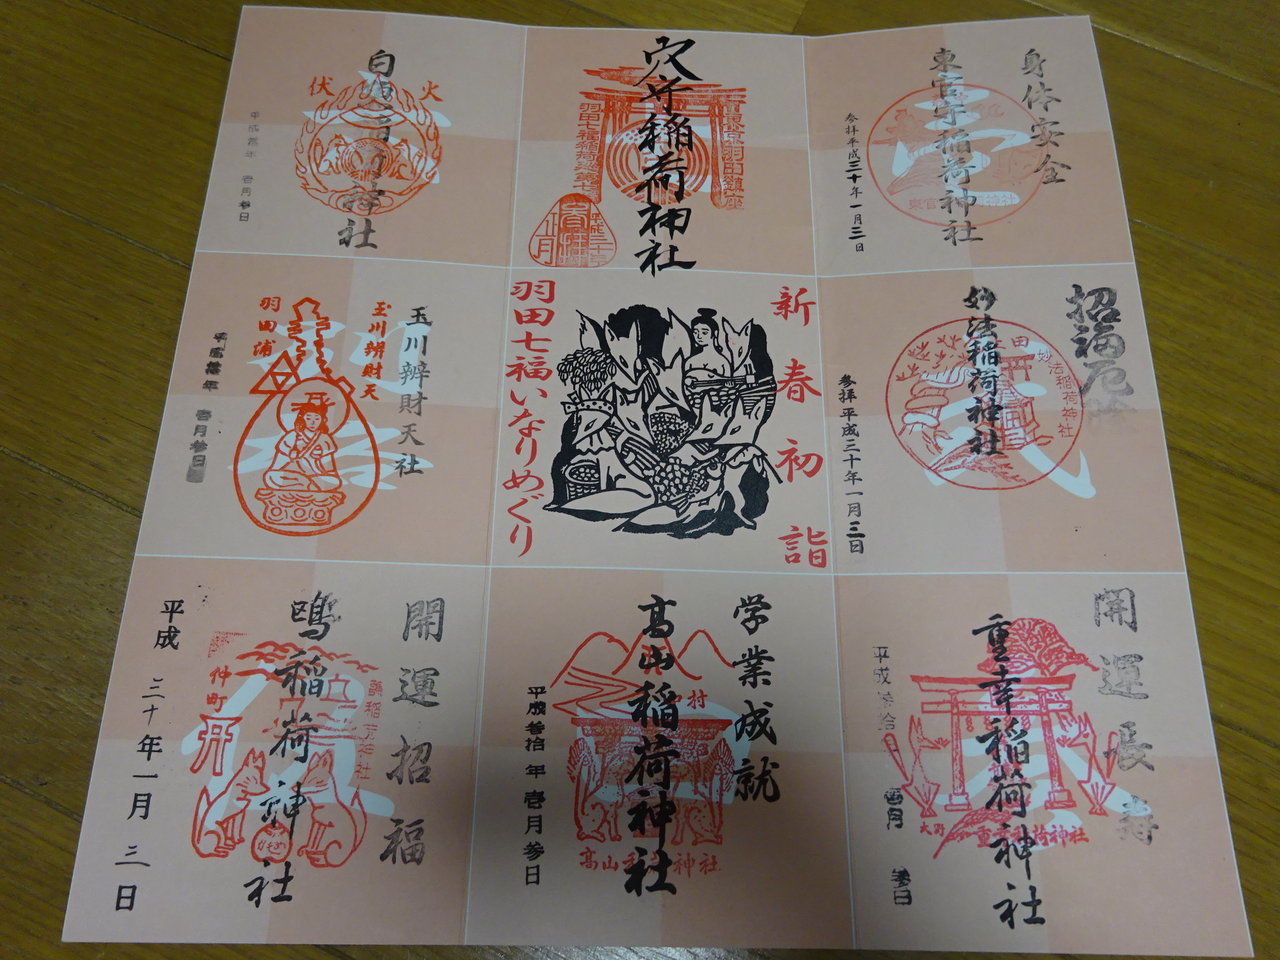 身体安全
東官守稲荷神社
参拝平成三十年一月三日
穴守稲荷神社
羽田七福稲荷
平成三十年
正月
火
伏
白魚稲荷神社
壱月参日
招福厄
妙法稲荷神社
田
妙法稲荷神社
参拝平成三十年一月三日
新春初詣
羽田七福いなりめぐり
玉川辨財天社
玉川辨財天
羽田浦
壱月参日
開運長寿
重幸稲荷神社
大野
重幸稲荷神社
平成参拾
壱月
参日
学業成就
高山稲荷神社
村
高山稲荷神社
平成参拾年壱月参日
開運招福
鴎稲荷神社
仲町
平成三十年一月三日